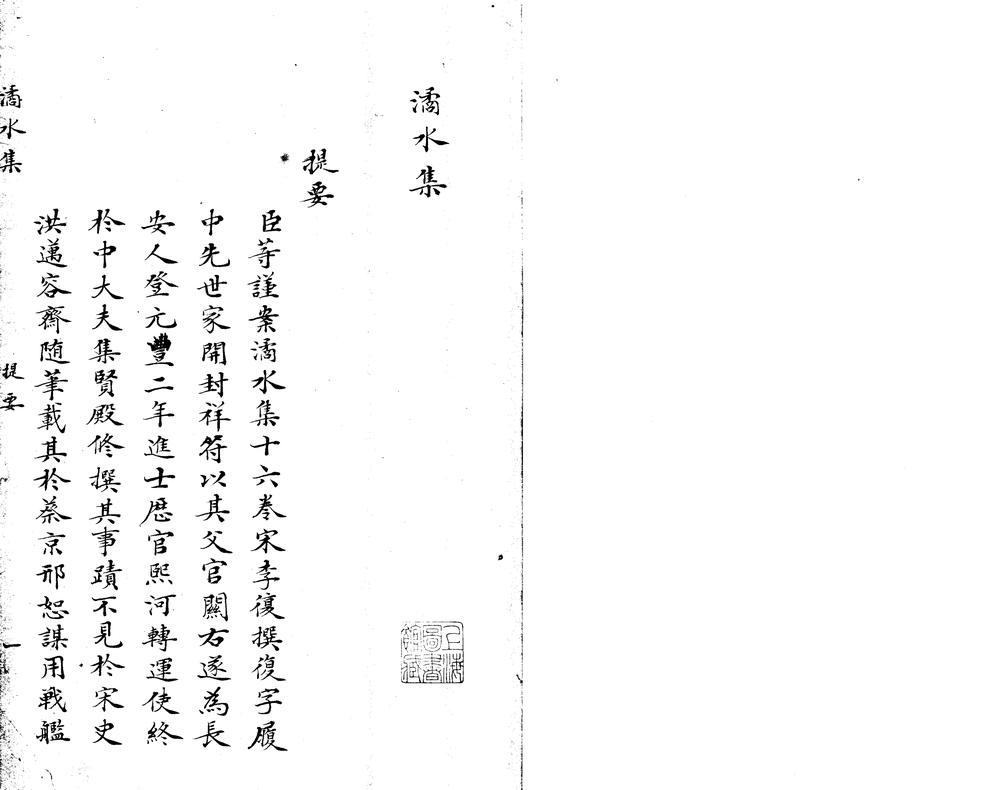 潏水集
提要
臣等謹案潏水集十六卷宋李復撰復字履
中先世家開封祥符以其父官關右遂為長
安人登元豐二年進士歴官熙河轉運使終
於中大夫集賢殿修撰其事蹟不見於宋史
洪邁容齋随筆載其於蔡京邢恕謀用戰艦
潏水集
提要
一
上海圖書館藏